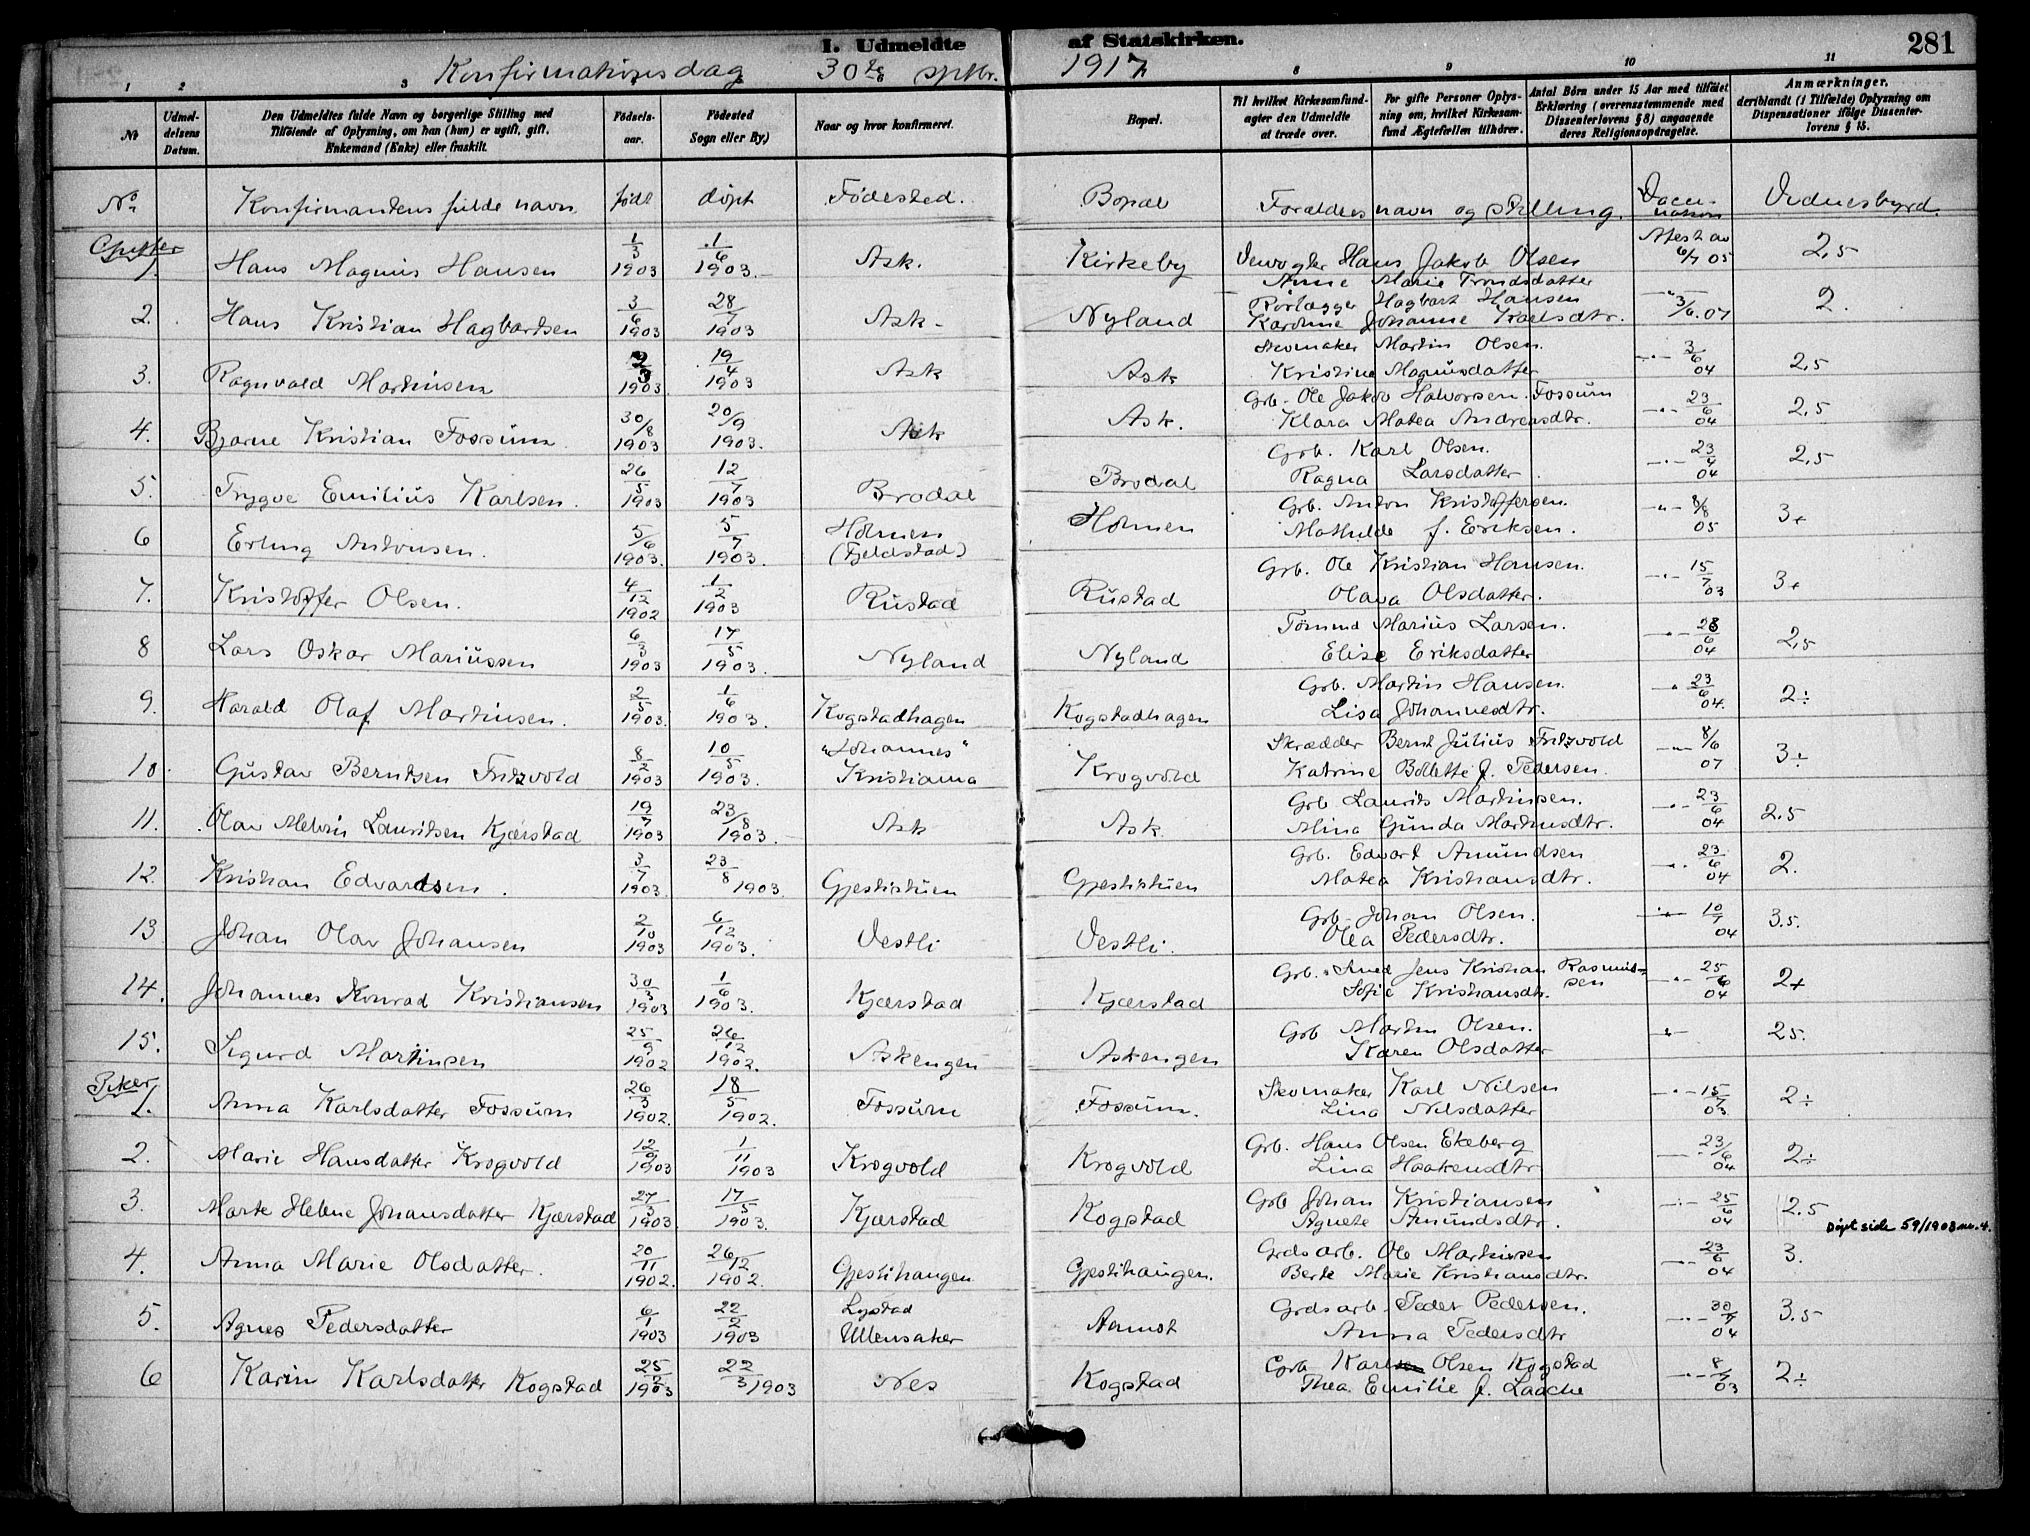 I. Udmeldte af Statskirken. 281
Konfirmationsdag 30te sptbr. 1917
1 2 3 8 9 10 11
No
Udmeldelsens Datum.
Den Udmeldtes fulde Navn og borgerlige Stilling med Tilføiende af Oplysning, om han (hun) er ugift, gift, Enkemand (Enke) eller fraskilt.
Fødselsaar.
Fødested Sogn eller By.)
Naar og hvor konfirmeret.
Bopæl.
Til hvilket Kirkesamfund agter den Udmeldte at træde over.
For gifte Personer Oplysning om, hvilket Kirkesamfund Ægtefællen tilhører.
Antal Børn under 15 Aar med tilføiet Erklæring (overensstemmende med Dissenterlovens § 8) angaaende deres Religionsopdragelse.
Anmærkninger, deriblandt (i Tilfælde) Oplysning om Dispensationer ifølge Dissenterlovens § 15.
No Konfirmantens fulde navn født døpt Fødested. Bopæl Forældres navn og stilling. Vaccination Vidnesbyrd.
Gutter
1. Hans Magnus Hansen 1/3 1903 1/6 1903. Ask. Kirkeby Hans Jakob Olsen Attest av 6/7 05 2,5
Anne Marie Trondsdatter
2. Hans Kristian Hagbartsen 3/6 1903 28/7 1903 Ask. Nyland Rørlægger Hagbart Hansen -"- 3/6.07 2.
Karoline Johanne
3. Ragnvald Martinsen 1903 19/4 1903 Ask Ask Skomaker Martin Olsen. -"- 3/6 04 2,5
Kristine Magnusdatter
4. Bjarne Kristian Fossum. 30/8 1903 20/9 1903. Ask Ask. Grb. Ole Jakob Halvorsen Fossum -"- 23/6 04 2,5
Klara Matea Andreasdtr.
5. Trygve Emilius Karlsen. 26/5 1903 12/7 1903 Brodal Brodal Grb. Karl Olsen. -"- 23/4 04 2,5
Ragna Larsdatter
6 Erling Antonsen. 5/6 1903. 5/7 1903. Holmen (Fjeldstad) Holmen Grb. Anton Kristoffersen. -"- 8/8 05 3+
Mathilde f. Eriksen.
7. Kristoffer Olsen. 4/12 1902 1/2 1903 Rustad Rustad Grb. Ole Kristian Hansen. -"- 15/7 03 3+
Olava Olsdatter.
8 Lars Oskar Mariussen 6/3 1903 17/5 1903. Nyland Nyland Tømmd Marius Larsen. -"- 23/6 04 2,5
Elise Eriksdatter
9. Harald Olaf Martinsen. 2/5 1903. 1/6 1903. Kogstadhagen Kogstadhagen Grb. Martin Hansen. " 23/6 04. 2÷
Lisa Johannesdtr.
10. Gustav Berntsen Fritzvold 8/2 1903 10/5 1903. "Johannes" Kristiania Krogvold Skrædder Bernt Julius Fritzvold -"- 8/6 07 3÷
Katrine Bollette f. Pedersen.
11. Olav Melvin Lauritsen Kjærstad 19/7 1903 23/8 1903. Ask Ask. Grb Laurits Martinsen. -"- 23/6 04 2.5
Alina Gunda Martinsdtr.
12. Kristian Edvardsen. 3/7 1903. 23/8 1903 Gjestistuen Gjestistuen Grb. Edvart Amundsen -"- 23/6 04 2.
Matea Kristiansdtr.
13 Johan Olav Johansen 2/10 1903 6/12 1903. Vestli Vestli. Grb. Johan Olsen. -"- 10/7 04 3.5.
Olea Pedersdtr.
14. Johannes Konrad Kristiansen 30/3 1903 1/6 1903. Kjærstad Kjærstad Grb. Smed Jens Kristian Rasmussen -"- 25/6 04 2+
Sofie Kristiansdtr.
15. Sigurd Martinsen 25/9 1902 26/12 1902. Askengen Askengen Grb Martin Olsen. " 25.
Karen Olsdatter
Piker
1. Anna Karlsdatter Fossum 26/3 1902. 18/5 1902. Fossum Fossum. Skomaker Karl Nilsen -"- 15/7 03 2÷
Lina Nilsdatter
2. Marie Hansdatter Krogvold 12/9 1903 1/11 1903 Krogvold Krogvold Grb. Hans Olsen Ekeberg -"- 23/6 04 2÷
Lina Haakensdtr
3. Marte Helene Johansdatter Kjærstad 27/3 1903. 17/5 1903. Kjærstad Kogstad Grb Johan Kristiansen -"- 25/6 04 2.5
Agnete Amundsdtr.
Døpt side 59/1903 nr. 4.
4. Anna Marie Olsdatter. 20/11 1902. 26/12 1902. Gjestihaugen Gjestihaugen. Grdsarb. Ole Martinsen -"- 23/6 04 3.
Berte Marie Kristiansdtr.
5. Agnes Pedersdatter 6/1 1903 22/2 1903 Lystad Ullensaker Aamot Grdsarb. Peder Pedersen. -"- 30/7 04 3.5
Anna Pedersdtr
6 Karin Karlsdatter Kogstad 25/ 1903 22/3 1903 Nes Kogstad Grb Karl Olsen Kogstad -"- 8/7 03 2÷
Thea Emilie f. Laache